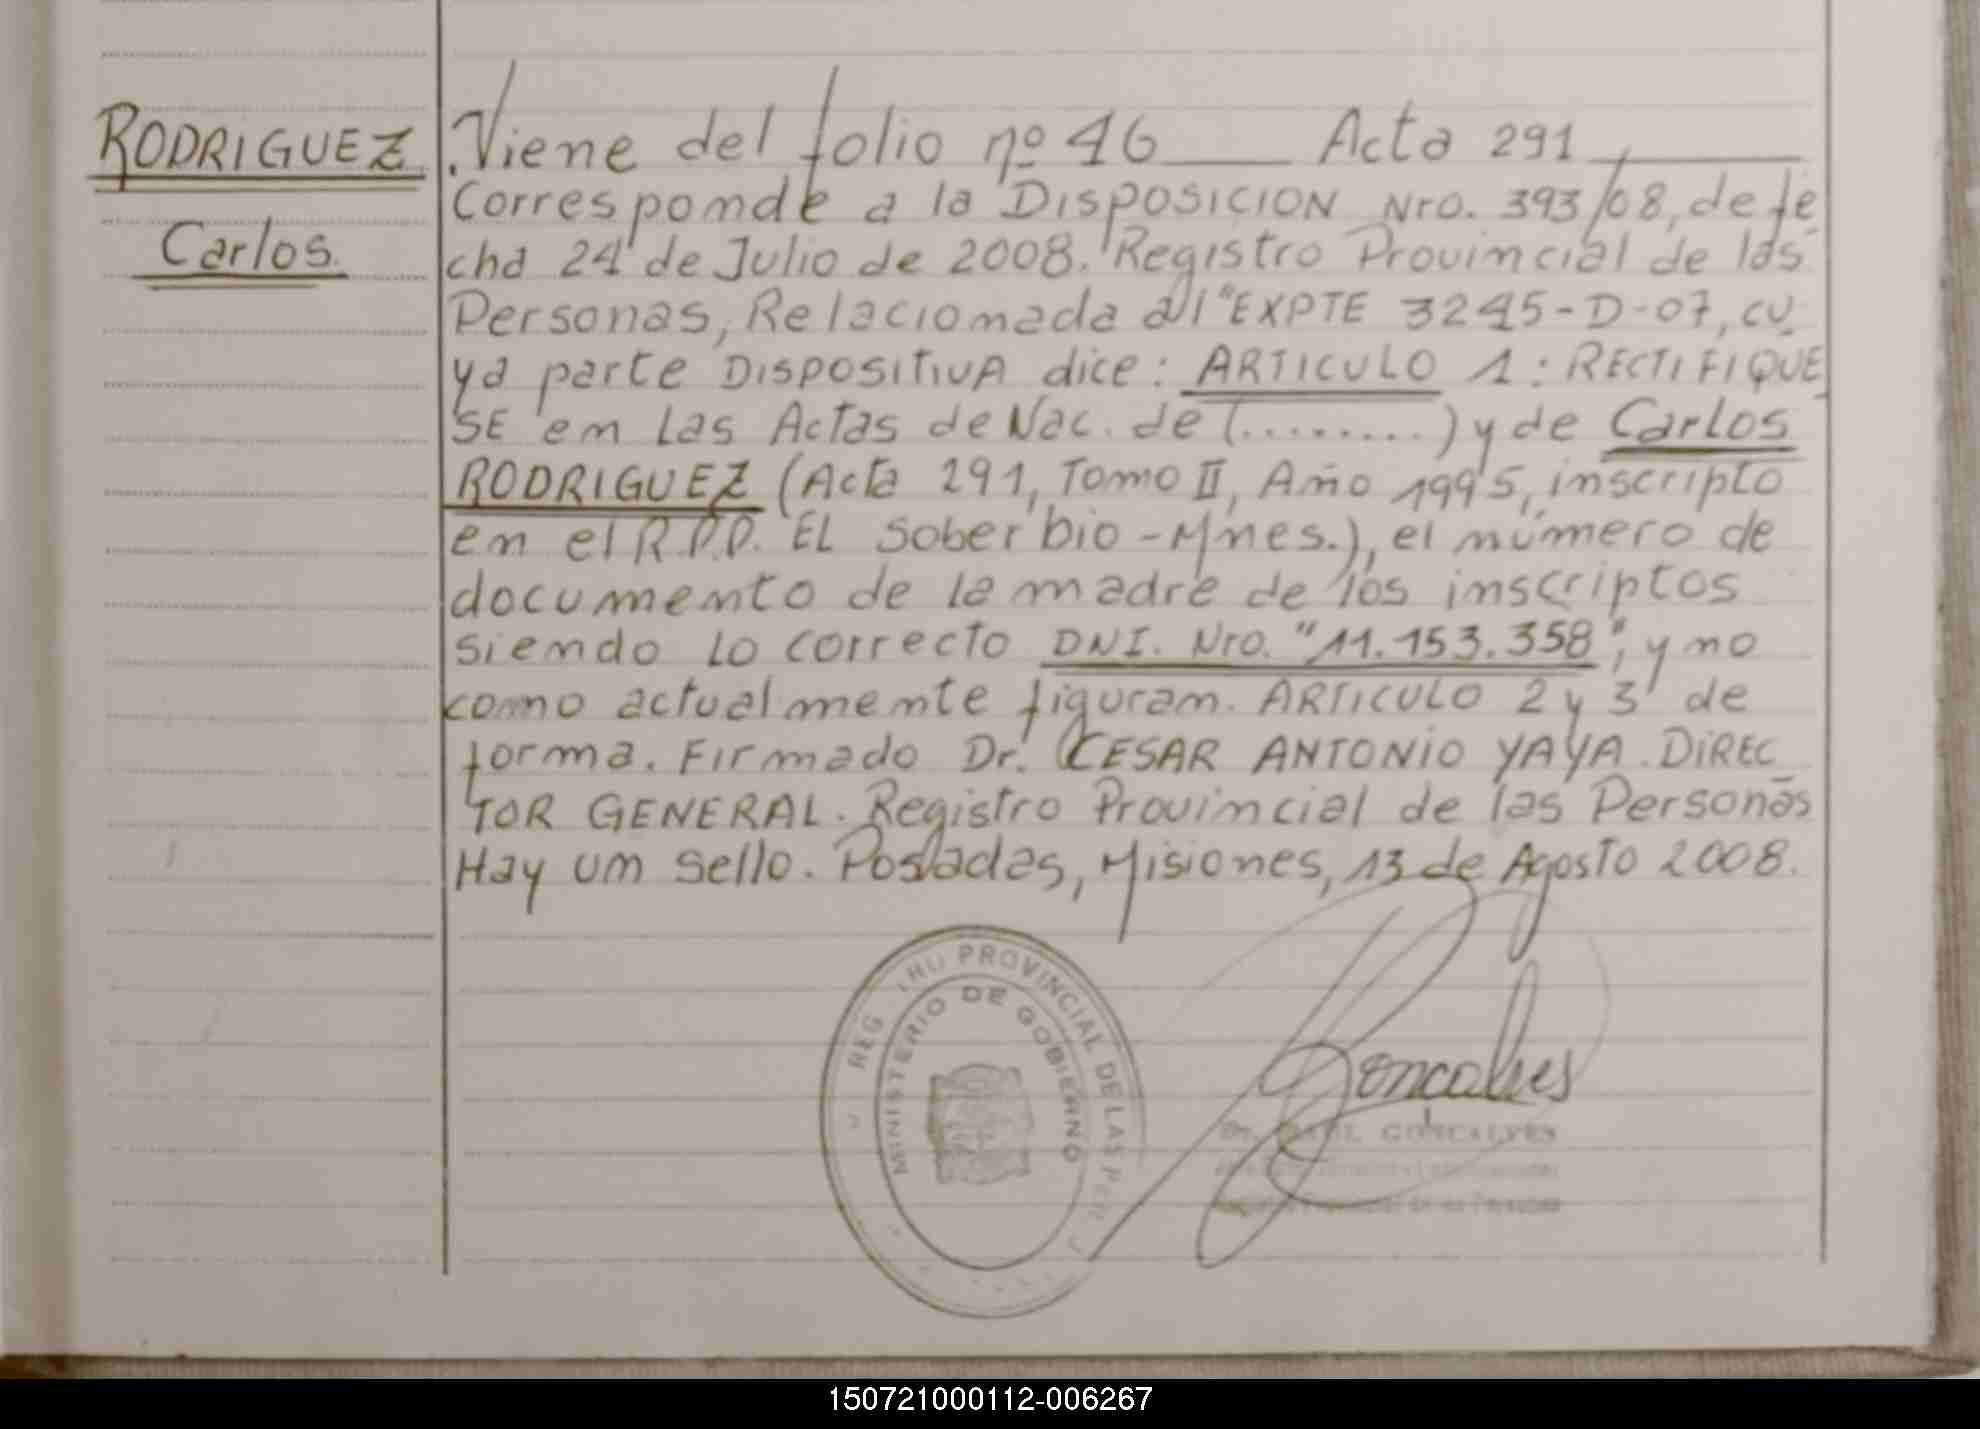 RODRIGUEZ
Carlos.
Viene del folio nº 46 ____ Acta 291 ____
Corresponde a la DISPOSICION Nro. 393/08, de fe
cha 24 de Julio de 2008. Registro Provincial de las
Personas, Relacionada al "EXPTE 3245-D-07, cu
ya parte DISPOSITIVA dice: ARTICULO 1: RECTIFIQUE
SE en Las Actas de Nac. de (.........) y de Carlos
RODRIGUEZ (Acta 291, Tomo II, Año 1995, inscripto
en el R.P.P. EL Soberbio - Mnes.), el número de
documento de la madre de los inscriptos
siendo lo correcto DNI. Nro. "11.153.358", y no
como actualmente figuran. ARTICULO 2 y 3 de
forma. Firmado Dr. CESAR ANTONIO YAYA. DIREC
TOR GENERAL. Registro Provincial de las Personas
Hay un sello. Posadas, Misiones, 13 de Agosto 2008.
PROVINCIAL DE LAS
MINISTERIO DE GOBIERNO
Goncalves
GONCALVES
150721000112-006267